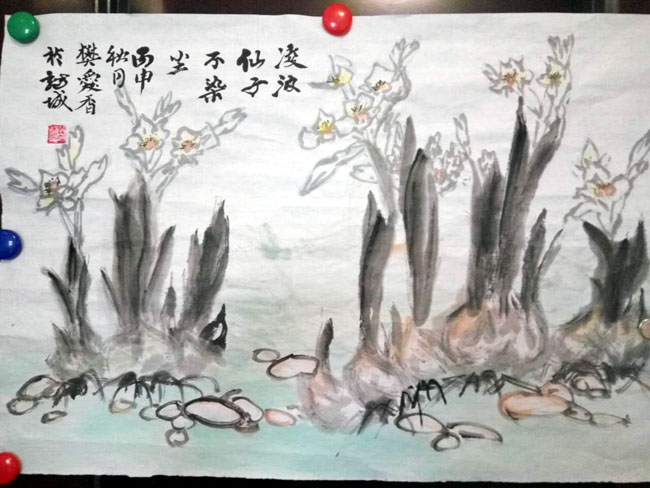 凌波
仙子
不染
尘
丙申
秋月
樊爱香
於龙城